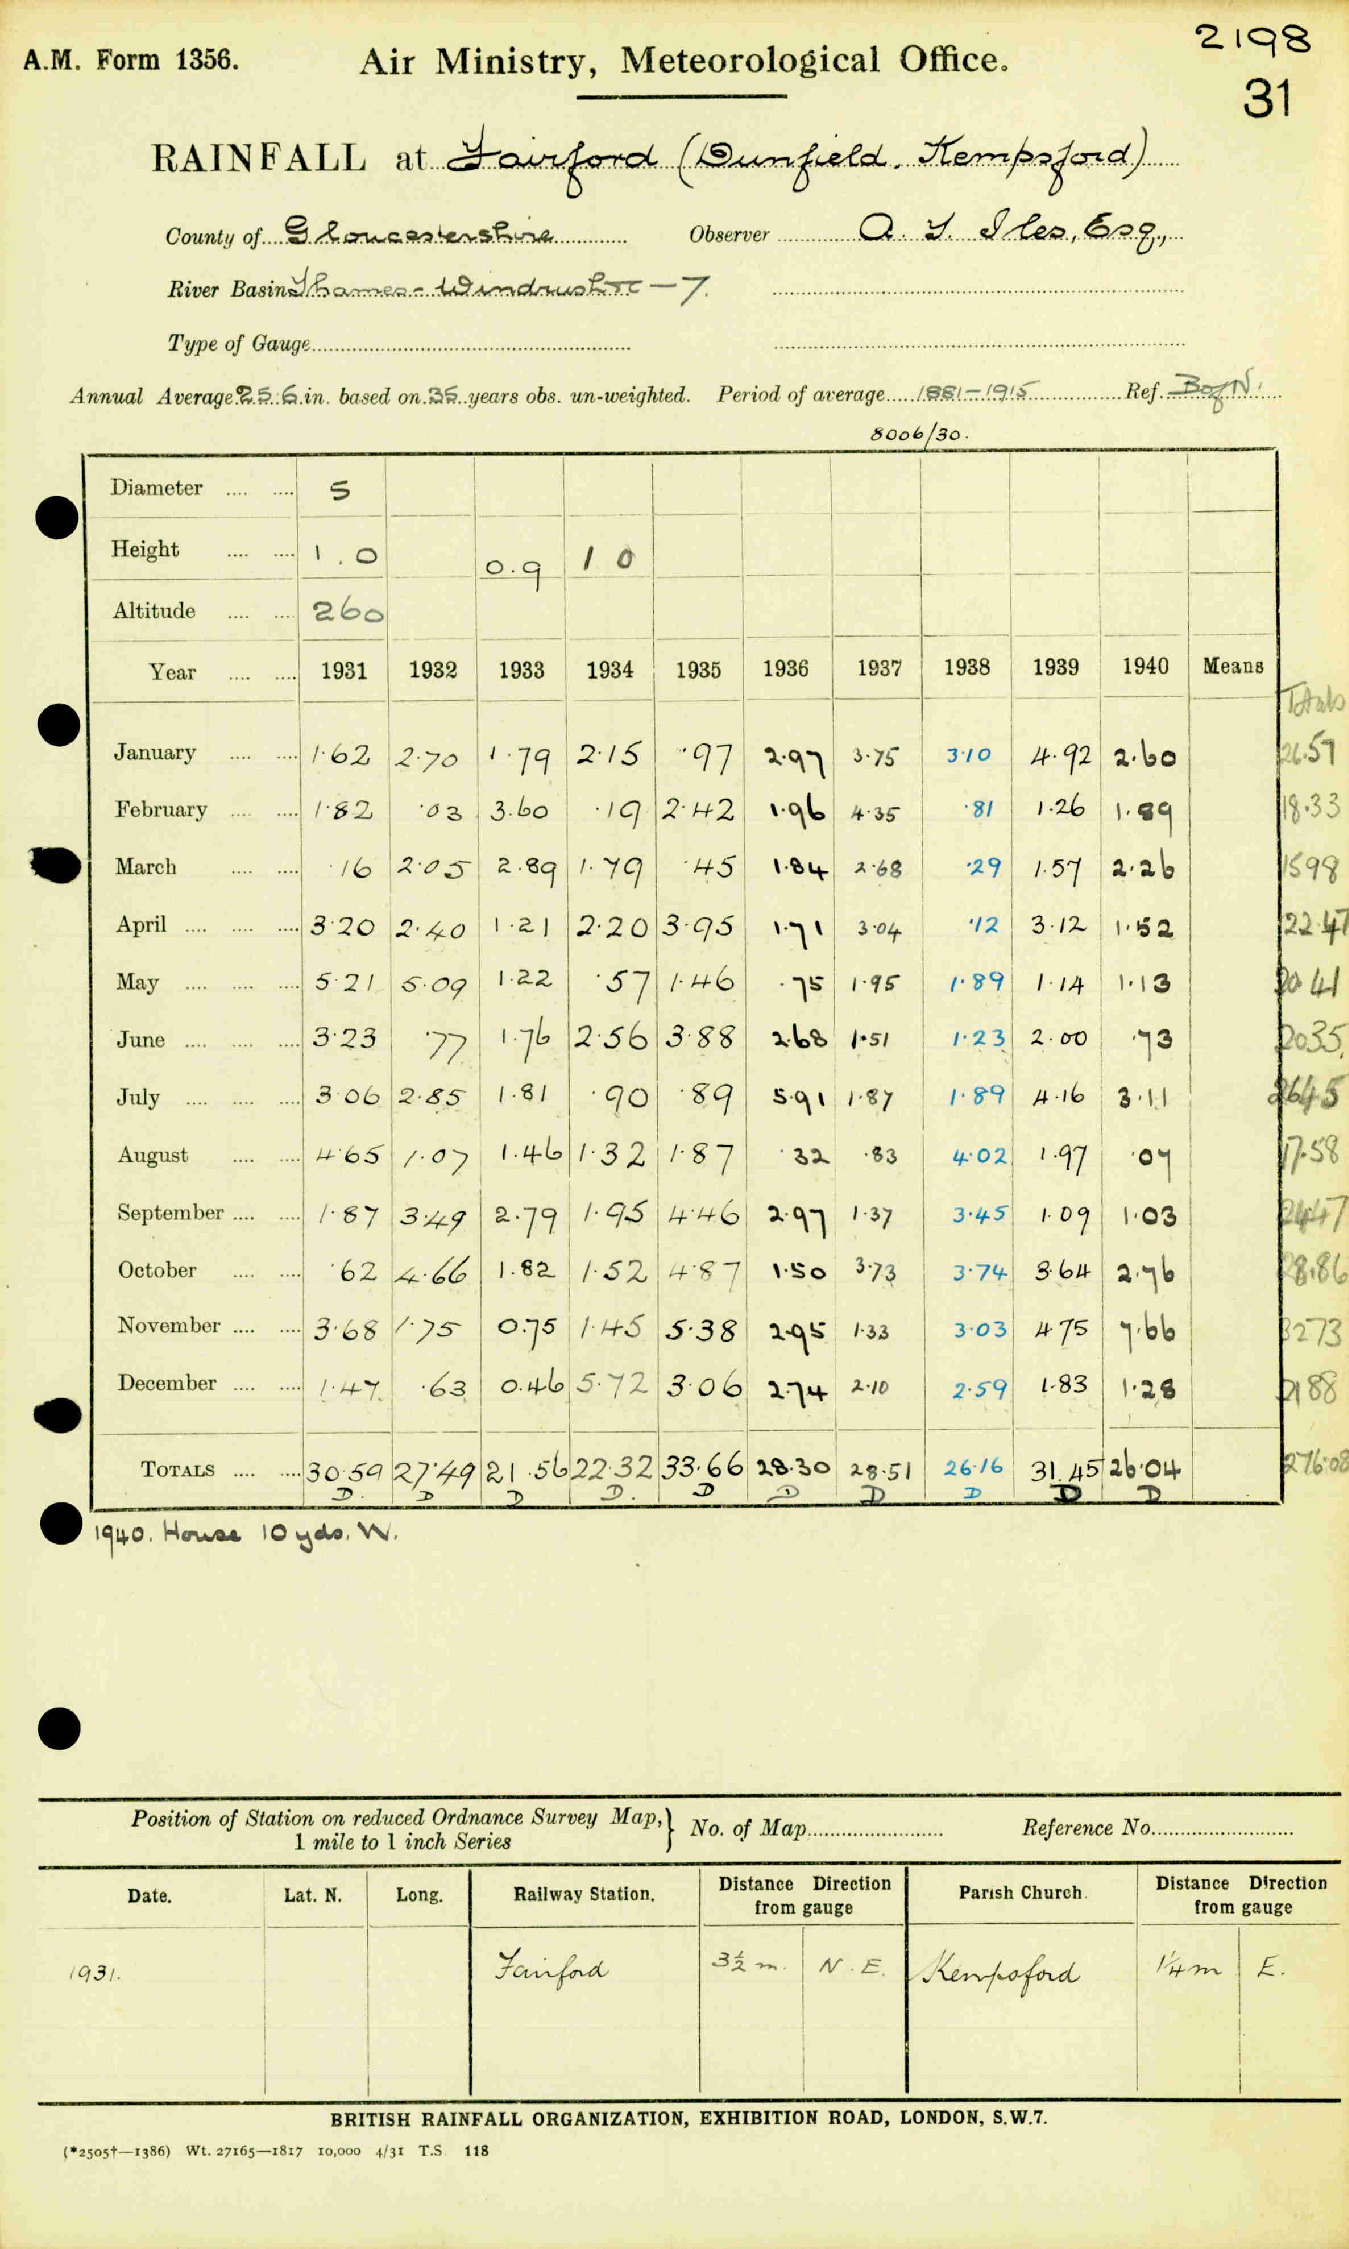 2198
A.M. Form 1356. Air Ministry, Meteorological Office.
31
RAINFALL at Fairford (Dunfield. Kempsford)
County of Gloucestershire Observer A. Y. Iles, Esq.,
River Basin Thames - Windrush - 7.
Type of Gauge
Annual Average 25.6 in. based on 35 years obs. un-weighted. Period of average 1881-1915 Ref. B of N.
8006/30.
Diameter 5
Height 1.0 0.9 1 0
Altitude 260
Year 1931 1932 1933 1934 1935 1936 1937 1938 1939 1940 Means
Totals
January 1.62 2.70 1.79 2.15 .97 2.97 3.75 3.10 4.92 2.60 26.57
February 1.82 .03 3.60 .19 2.42 1.96 4.35 .81 1.26 1.89 18.33
March .16 2.05 2.89 1.79 .45 1.84 2.68 .29 1.57 2.26 1598
April 3.20 2.40 1.21 2.20 3.95 1.71 3.04 .12 3.12 1.52 22.47
May 5.21 5.09 1.22 .57 1.46 .75 1.95 1.89 1.14 1.13 20.41
June 3.23 .77 1.76 2.56 3.88 2.68 1.51 1.23 2.00 .73 2035
July 3.06 2.85 1.81 .90 .89 5.91 1.87 1.89 4.16 3.11 2645
August 4.65 1.07 1.46 1.32 1.87 .32 .83 4.02 1.97 .07 17.58
September 1.87 3.49 2.79 1.95 4.46 2.97 1.37 3.45 1.09 1.03 2447
October .62 4.66 1.82 1.52 4.87 1.50 3.73 3.74 3.64 2.76 28.86
November 3.68 1.75 0.75 1.45 5.38 2.95 1.33 3.03 4.75 7.66 3273
December 1.47 .63 0.46 5.72 3.06 2.74 2.10 2.59 1.83 1.28 2188
TOTALS 30.59 27.49 21.56 22.32 33.66 28.30 28.51 26.16 31.45 26.04 276.08
D D D D D D D D D D
1940. House 10 yds. W.
Position of Station on reduced Ordnance Survey Map,} No. of Map Reference No.
1 mile to 1 inch Series
Date. Lat. N. Long. Railway Station. Distance Direction from gauge Parish Church. Distance Direction from gauge
1931. Fairford 3½ m. N.E. Kempsford 1¼ m E.
BRITISH RAINFALL ORGANIZATION, EXHIBITION ROAD, LONDON, S.W.7.
(*2505†—1386) Wt. 27165—1817 10,000 4/31 T.S 118